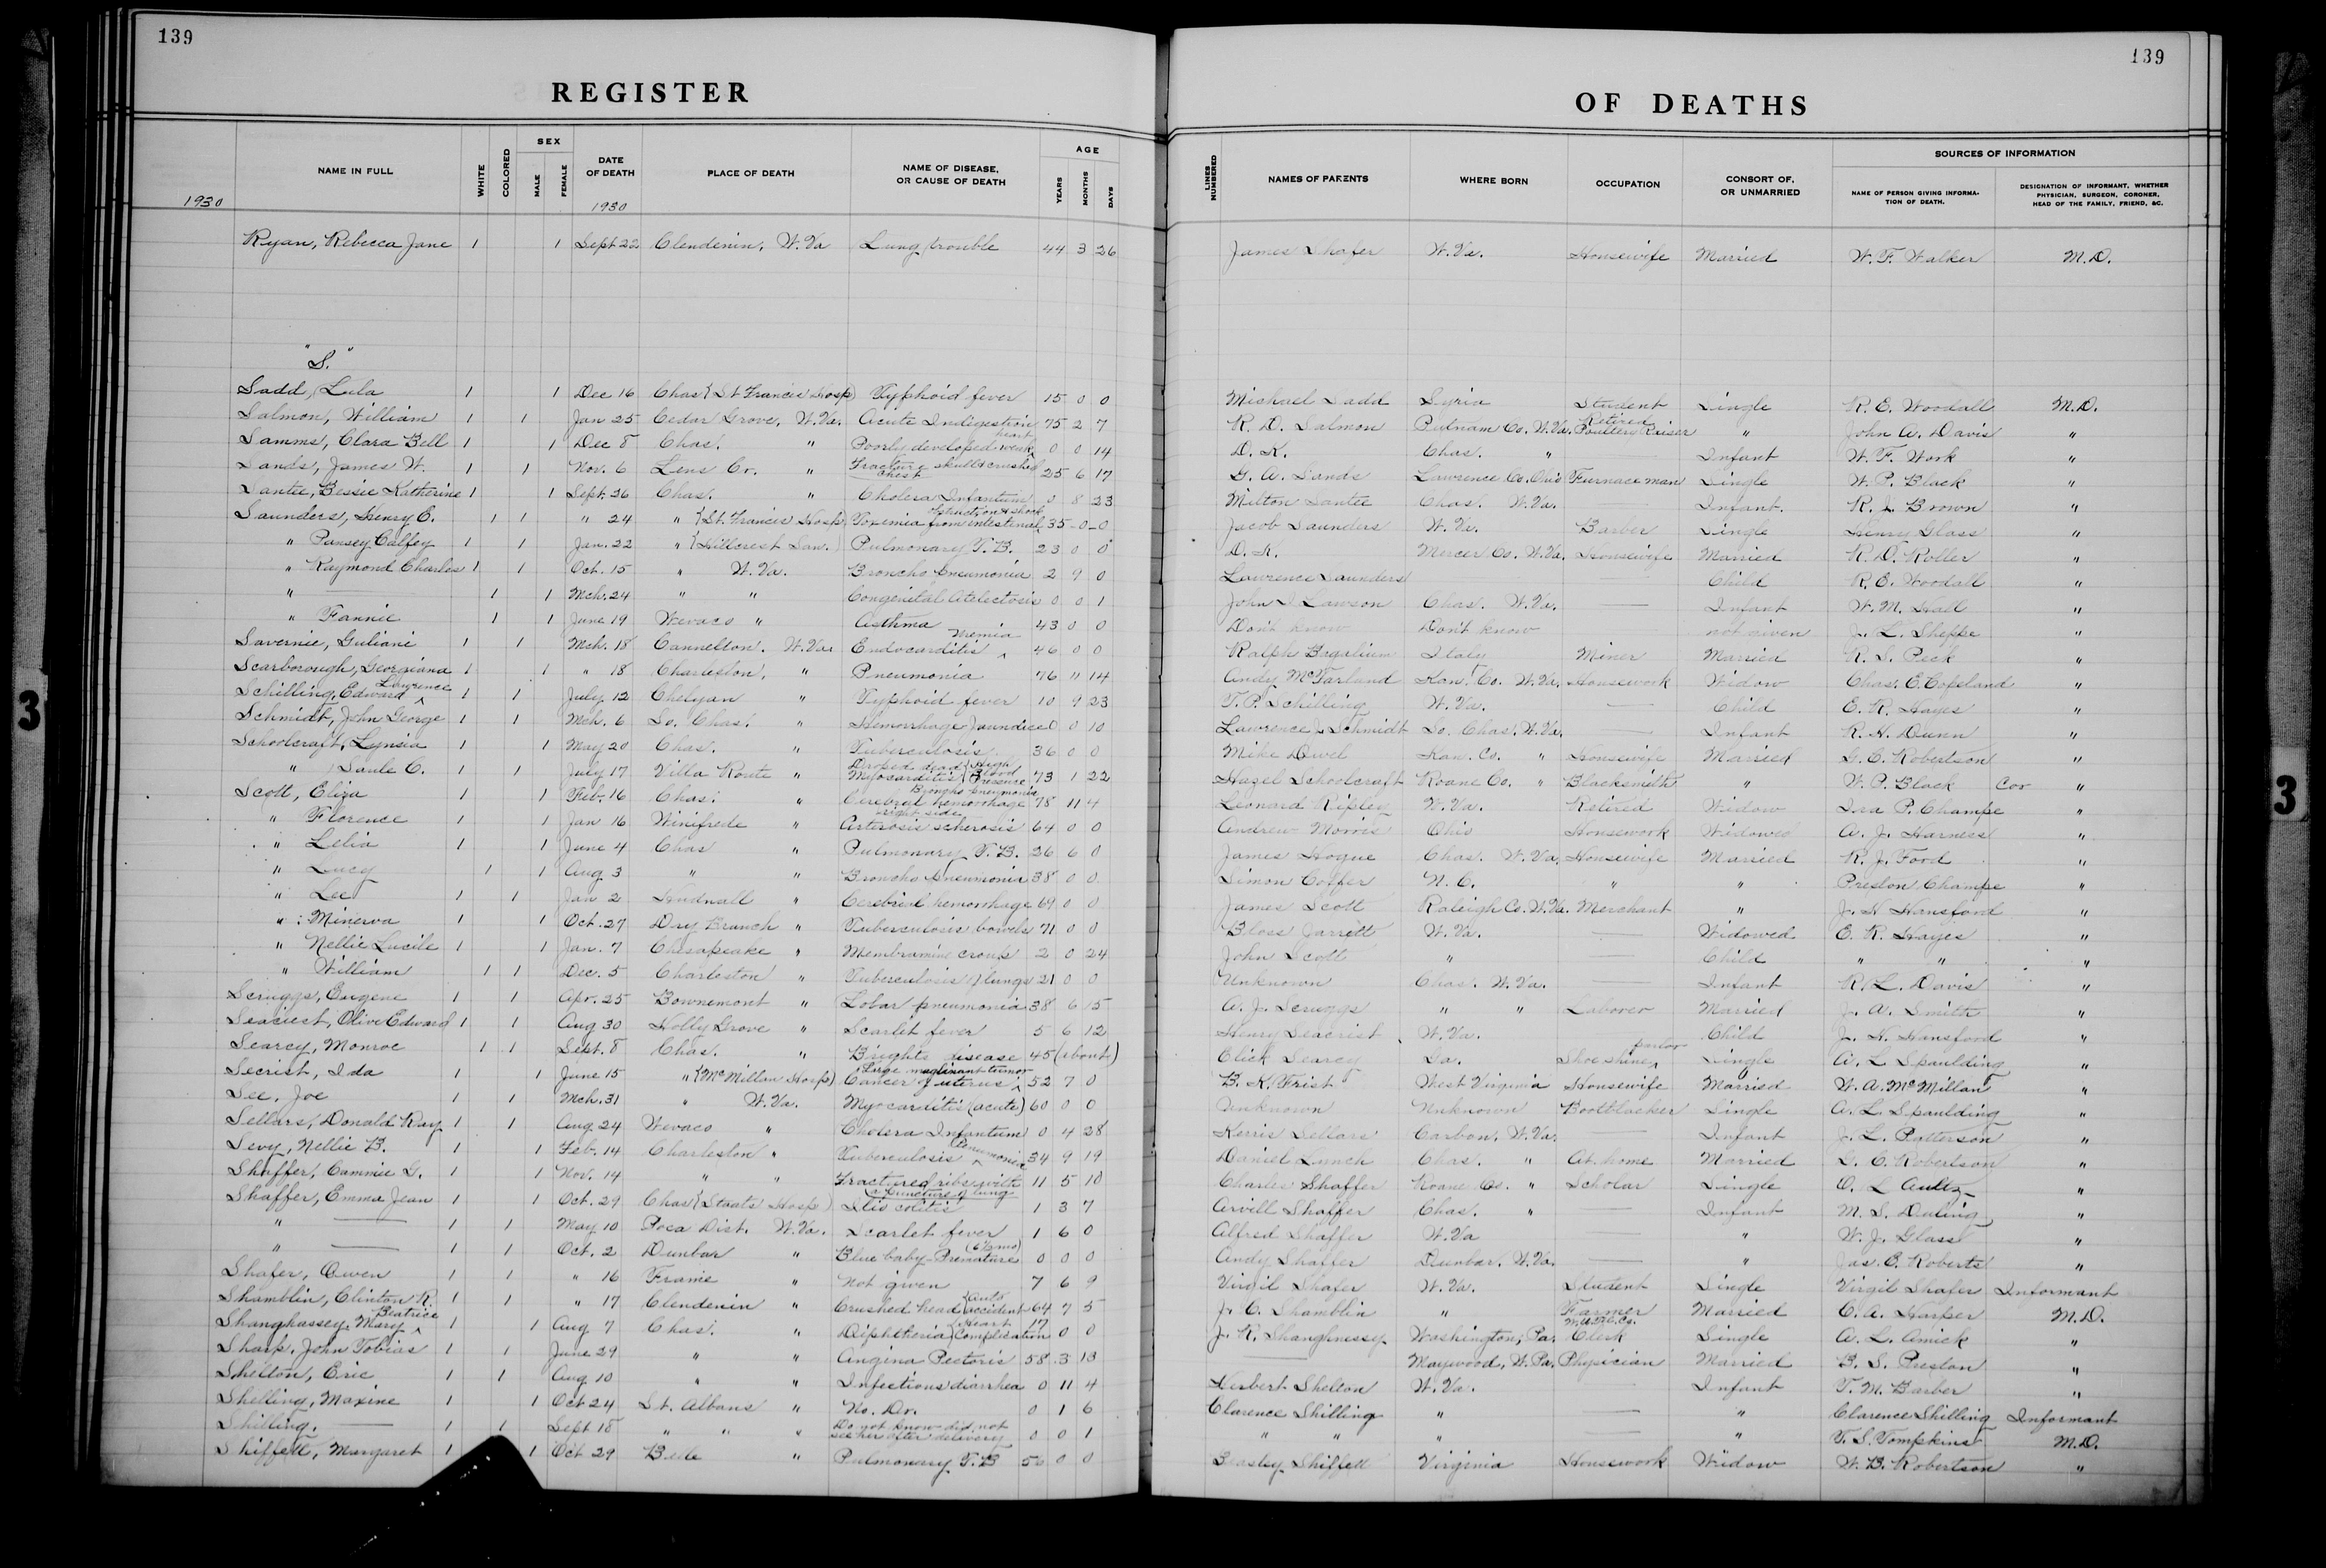 139
139
REGISTER OF DEATHS
NAME IN FULL WHITE COLORED SEX MALE FEMALE DATE OF DEATH PLACE OF DEATH NAME OF DISEASE, OR CAUSE OF DEATH AGE YEARS MONTHS DAYS LINES NUMBERED NAMES OF PARENTS WHERE BORN OCCUPATION CONSORT OF, OR UNMARRIED SOURCES OF INFORMATION NAME OF PERSON GIVING INFORMATION OF DEATH. DESIGNATION OF INFORMANT, WHETHER PHYSICIAN, SURGEON, CORONER, HEAD OF THE FAMILY, FRIEND, &C.
1930 1930
Ryan, Rebecca Jane 1 1 Sept 22 Clendenin, W. Va Lung trouble 44 3 26 James Shafer W. Va. Housewife Married W. F. Walker M.D.
"S."
Sadd, Lula 1 1 Dec 16 Chas (St Francis Hosp) Typhoid fever 15 0 0 Michael Sadd Syria Student Single R. E. Woodall M.D.
Salmon, William 1 1 Jan 25 Cedar Grove, W. Va. Acute Indigestion 75 2 7 R. D. Salmon Putnam Co. W. Va. Retired Poultry Raiser " John A. Davis "
Samms, Clara Bell 1 1 Dec 8 Chas. " Poorly developed weak heart 0 0 14 D. K. Chas. " Infant W. F. Work "
Sands, James W. 1 1 Nov. 6 Lens Cr. " Fracture skull & crushed chest 25 6 17 G. A. Sands Lawrence Co. Ohio Furnace man Single W. P. Black "
Santee, Bessie Katherine 1 1 Sept. 26 Chas. " Cholera Infantum 0 8 23 Milton Santee Chas. W. Va. Infant. R. J. Brown "
Saunders, Henry E. 1 1 " 24 " (St. Francis Hosp) Toxemia from intestinal obstruction & shock 35-0-0 Jacob Saunders W. Va. Barber Single Henry Glass "
" Pansey Calfey 1 1 Jan. 22 " (Hillcrest San.) Pulmonary T. B. 23 0 0 D. K. Mercer Co. W. Va. Housewife Married R. D. Roller "
" Raymond Charles 1 1 Oct. 15 " W. Va. Broncho pneumonia 2 9 0 Lawrence Saunders Child R. E. Woodall "
" — 1 1 Mch. 24 " " Congenital Atelectosis 0 0 1 John I Lawson Chas. W. Va. — Infant W. M. Hall "
" Fannie 1 1 June 19 Wevaco " Asthma 43 0 0 Don't know Don't know not given J. L. Sheppe "
Savernie, Guliani 1 1 Mch. 18 Cannelton. W. Va. Endocarditis Uremia 46 0 0 Ralph Italy Miner Married R. S. Peck "
Scarborough, Georgiana 1 1 " 18 Charleston, " Pneumonia 76 11 14 Andy McFarland Kan. Co. W. Va. Housework Widow Chas. E. Copeland "
Schilling, Edward Lawrence 1 1 July 12 Chelyan " Typhoid fever 10 9 23 T. P. Schilling W. Va. — Child E. R. Hayes "
Schmidt, John George 1 1 Mch. 6 So. Chas. " Hemorrhage Jaundice 0 0 10 Lawrence J. Schmidt So. Chas. W. Va. — Infant R. H. Dunn "
Schoolcraft, Lynsia 1 1 May 20 Chas. " Tuberculosis 36 0 0 Mike Kan. Co. " Housewife Married G. C. Robertson "
" Saule C. 1 1 July 17 Villa Route " Droped dead Myocarditis (High Blood Pressure 73 1 22 Hazel Schoolcraft Roane Co. " Blacksmith " W. P. Black Cor "
Scott, Eliza 1 1 Feb. 16 Chas. " Cerebral hemorrhage Broncho pneumonia right side 78 11 4 Leonard Ripley W. Va. Retired Widow Ira P. Champe "
" Florence 1 1 Jan 16 Winifrede " Arterosis scherosis 64 0 0 Andrew Morris Ohio Housework Widowed A. J. Harness "
" Lelia 1 1 June 4 Chas " Pulmonary T. B. 26 6 0 James Hogue Chas. W. Va. Housewife Married R. J. Ford "
" Lucy 1 1 Aug 3 " " Broncho pneumonia 38 0 0 Simon Coffer N. C. " " Preston Champe "
" Lee 1 1 Jan 2 Hudnall " Cerebrial hemorrhage 69 0 0 James Scott Raleigh Co. W. Va. Merchant " J. H Hansford "
" Minerva 1 1 Oct. 27 Dry Branch " Tuberculosis bowels 71 0 0 Bloss Jarrett W. Va. — Widowed E. R. Hayes "
" Nellie Lucile 1 1 Jan. 7 Chesapeake " Membramine croup 2 0 24 John Scott " — Child " " "
" William 1 1 Dec. 5 Charleston " Tuberculosis of lungs 21 0 0 Unknown Chas. W. Va. — Infant R. L. Davis "
Scruggs, Eugene 1 1 Apr. 25 Bownemont " Lobar pneumonia 38 6 15 A. J. Scruggs " " Laborer Married J. A. Smith "
Seacrist, Olive Edward 1 1 Aug 30 Holly Grove " Scarlet fever 5 6 12 Henry Seacrist W. Va. Child J. H. Hansford "
Searcy, Monroe 1 1 Sept. 8 Chas. " Brights disease 45 (about) Click Searcy Ga. Shoe shine parlor Single A. L Spaulding "
Secrist, Ida 1 1 June 15 " (McMillan Hosp) Cancer of uterus Large maglinant tumor 52 7 0 B. K. Frist West Virginia Housewife Married W. A. McMillan "
See, Joe 1 1 Mch. 31 " W. Va. Myocarditis (acute) 60 0 0 Unknown Unknown Bootblacker Single A. L. Spaulding "
Sellars, Donald Ray 1 1 Aug 24 Wevaco " Cholera Infantum 0 4 28 Kerris Sellars Carbon, W. Va. — Infant J. L. Patterson "
Sevy, Nellie B. 1 1 Feb. 14 Charleston " Tuberculosis Pneumonia 34 9 19 Daniel Lynch Chas. " At home Married G. C. Robertson "
Shaffer, Cammie G. 1 1 Nov. 14 " " Fractured ribs with a puncture of lung 11 5 10 Charles Shaffer Roane Co. " Scholar Single O. L Aultz "
Shaffer, Emma Jean 1 1 Oct. 29 Chas (Staats Hosp) Ilio colitis 1 3 7 Arvill Shaffer Chas. " — Infant M. S. Duling "
" — 1 1 May 10 Poca Dist. W. Va. Scarlet fever 1 6 0 Alfred Shaffer W. Va — " W. J. Glass "
" — 1 1 Oct. 2 Dunbar " Blue baby-Premature (6½ mo) 0 0 0 Andy Shaffer Dunbar, W. Va. — " Jas. E. Roberts "
Shafer, Owen 1 1 " 16 Frame " Not given 7 6 9 Virgil Shafer W. Va. Student Single Virgil Shafer Informant
Shamblin, Clinton R. 1 1 " 17 Clendenin " Crushed head (Auto accident 64 7 5 J. C. Shamblin " Farmer Married C. A. Harper M.D.
Shanghassey, Mary Beatrice 1 1 Aug 7 Chas. " Diphtheria (Heart Complication 17 0 0 J. R. Shanghnessy Washington, Pa. Clerk Single A. L. Amick "
Sharp, John Tobias 1 1 June 29 " " Angina Pectoris 58 3 13 — Maywood, W. Pa. Physician Married B. S. Preston "
Shelton, Eric 1 1 Aug 10 " " Infectious diarrhea 0 11 4 Herbert Shelton W. Va. — Infant T. M. Barber "
Shelling, Maxine 1 1 Oct 24 St. Albans " No. Dr. 0 1 6 Clarence Shilling " — " Clarence Shilling Informant
Shilling, — 1 1 Sept 18 " " " Do not know did not see her after delivery 0 0 1 " " " — " T. S. Tompkins M.D.
Shiffett, Margaret 1 1 Oct 29 Belle " Pulmonary T. B 56 0 0 Beasley Shiffett Virginia Housework Widow W. B. Robertson "
3
3